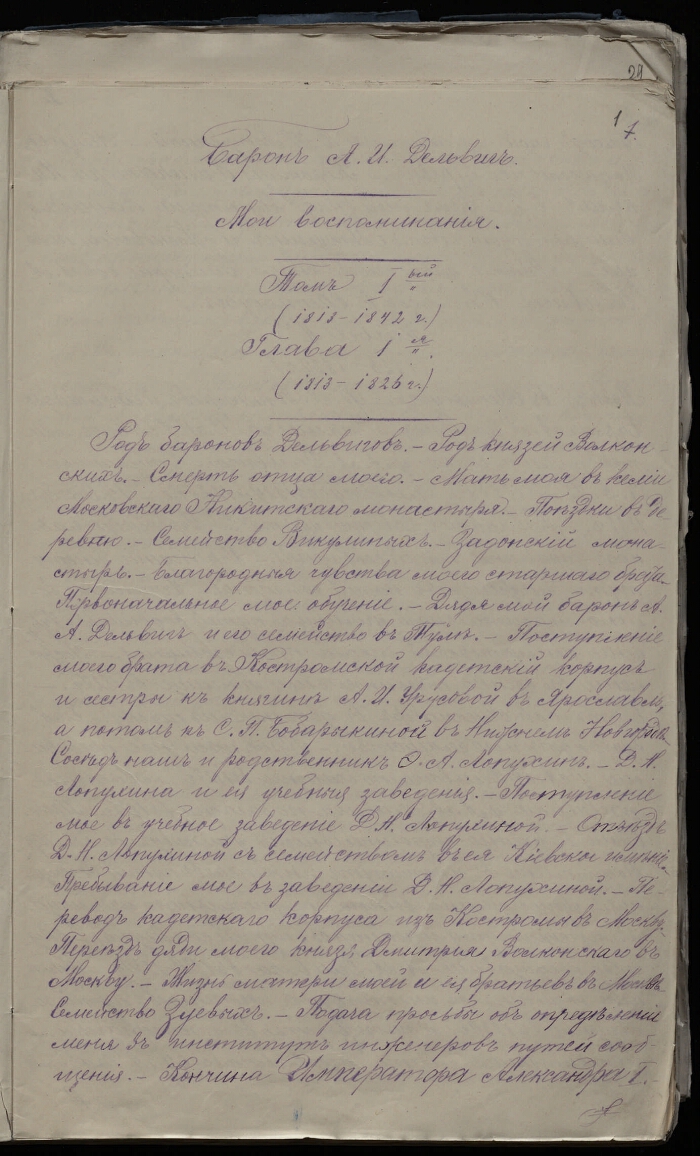 29
1 7.
Баронъ А. И. Дельвигъ.
Мои воспоминанія.
Томъ I ый
(1813–1842 г.)
Глава I я.
(1813–1826 г.)
Родъ бароновъ Дельвиговъ. – Родъ князей Волкон-
скихъ. – Смерть отца моего. – Мать моя въ келіи
Московскаго Никитскаго монастыря. – Поѣздки въ де-
ревню. – Семейство Викулиныхъ. – Задонскій мона-
стырь. – Благородныя чувства моего старшаго брата.
Первоначальное мое обученіе. – Дядя мой баронъ А.
А. Дельвигъ и его семейство въ Тулѣ. – Поступленіе
моего брата въ Костромской кадетскій корпусъ
и сестры къ княгинѣ А. И. Урусовой въ Ярославль,
а потомъ къ С. П. Бобарыкиной въ Нижнемъ Новгородѣ.
Сосѣдъ нашъ и родственникъ А. Лопухинъ. – Д. Н.
Лопухина и ея учебныя заведенія. – Поступленіе
мое въ учебное заведеніе Д. Н. Лопухиной. – Отъѣздъ
Д. Н. Лопухиной съ семействомъ въ ея Кіевское имѣніе.
Пребываніе мое въ заведеніи Д. Н. Лопухиной. – Пе-
реводъ кадетскаго корпуса изъ Костромы въ Москву.
Переѣздъ дяди моего князя Дмитрія Волконскаго въ
Москву. – Жизнь матери моей и ея братьевъ въ Москвѣ.
Семейство Зуевыхъ. – Подача просьбы объ опредѣленіи
меня въ институтъ инженеровъ путей сооб-
щенія. – Кончина Императора Александра I.